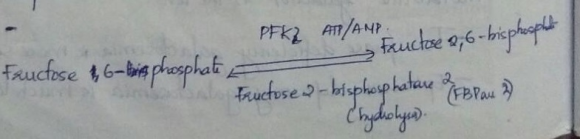 PFK2 ATP/AMP.
Fructose 2,6-bisphosphate
Fructose 6-phosphate
Fructose 2-bisphosphatase 2 (FBPase 2)
(hydrolysis).